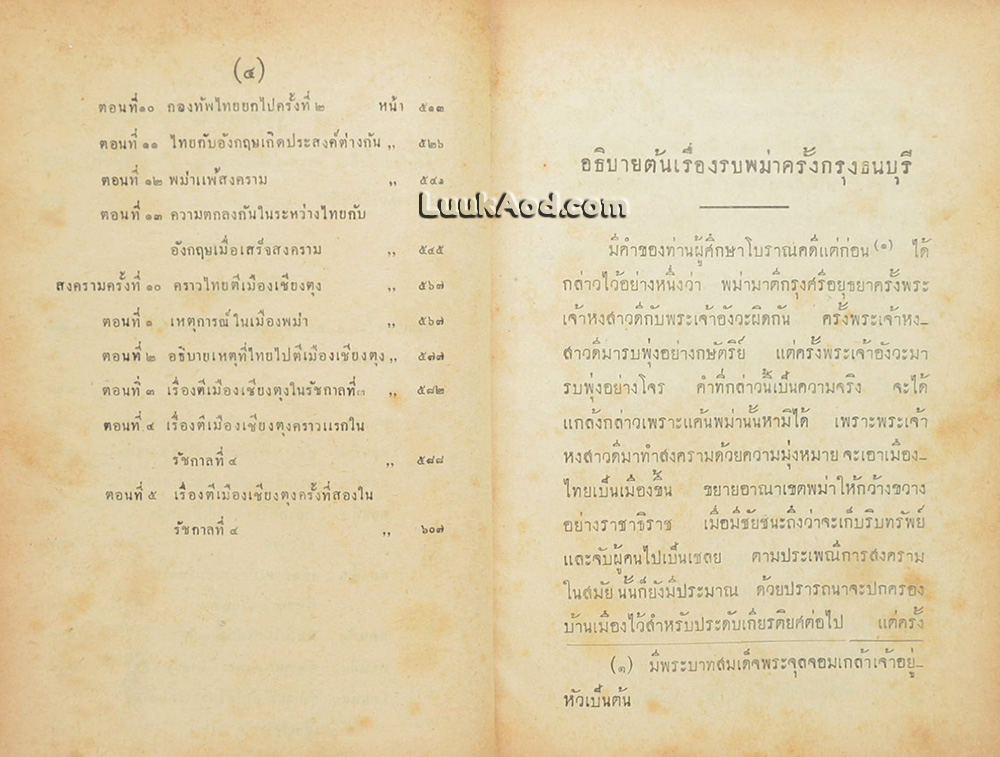 (๔)
ตอนที่ ๑๐ กองทัพไทยยกไปครั้งที่ ๒ หน้า ๕๑๓
ตอนที่ ๑๑ ไทยกับอังกฤษเกิดประสงค์ต่างกัน ,, ๕๒๖
ตอนที่ ๑๒ พม่าแพ้สงคราม ,, ๕๔๑
ตอนที่ ๑๓ ความตกลงกันในระหว่างไทยกับ
อังกฤษเมื่อเสร็จสงคราม ,, ๕๔๕
สงครามครั้งที่ ๑๐ คราวไทยตีเมืองเชียงตุง ,, ๕๖๗
ตอนที่ ๑ เหตุการณ์ในเมืองพม่า ,, ๕๖๗
ตอนที่ ๒ อธิบายเหตุที่ไทยไปตีเมืองเชียงตุง ,, ๕๗๗
ตอนที่ ๓ เรื่องตีเมืองเชียงตุงในรัชกาลที่ ๓ ,, ๕๘๒
ตอนที่ ๔ เรื่องตีเมืองเชียงตุงคราวแรกใน
รัชกาลที่ ๔ ,, ๕๘๘
ตอนที่ ๕ เรื่องตีเมืองเชียงตุงครั้งที่สองใน
รัชกาลที่ ๔ ,, ๖๐๗
LuukAod.com
อธิบายต้นเรื่องรบพม่าครั้งกรุงธนบุรี
มีคำของท่านผู้ศึกษาโบราณคดีแต่ก่อน (๑) ได้
กล่าวไว้อย่างหนึ่งว่า พม่ามาตีกรุงศรีอยุธยาครั้งพระ
เจ้าหงสาวดีกับพระเจ้าอังวะผิดกัน ครั้งพระเจ้าหง-
สาวดีมารบพุ่งอย่างกษัตริย์ แต่ครั้งพระเจ้าอังวะมา
รบพุ่งอย่างโจร คำที่กล่าวนี้เป็นความจริง จะได้
แกล้งกล่าวเพราะแค้นพม่านั้นหามิได้ เพราะพระเจ้า
หงสาวดีมาทำสงครามด้วยความมุ่งหมาย จะเอาเมือง-
ไทยเป็นเมืองขึ้น ขยายอาณาเขตพม่าให้กว้างขวาง
อย่างราชาธิราช เมื่อมีชัยชนะถึงว่าจะเก็บริบทรัพย์
และจับผู้คนไปเป็นเชลย ตามประเพณีการสงคราม
ในสมัยนั้นก็ยังมีประมาณ ด้วยปรารถนาจะปกครอง
บ้านเมืองไว้สำหรับประดับเกียรติยศต่อไป แต่ครั้ง
(๑) มีพระบาทสมเด็จพระจุลจอมเกล้าเจ้าอยู่-
หัวเป็นต้น